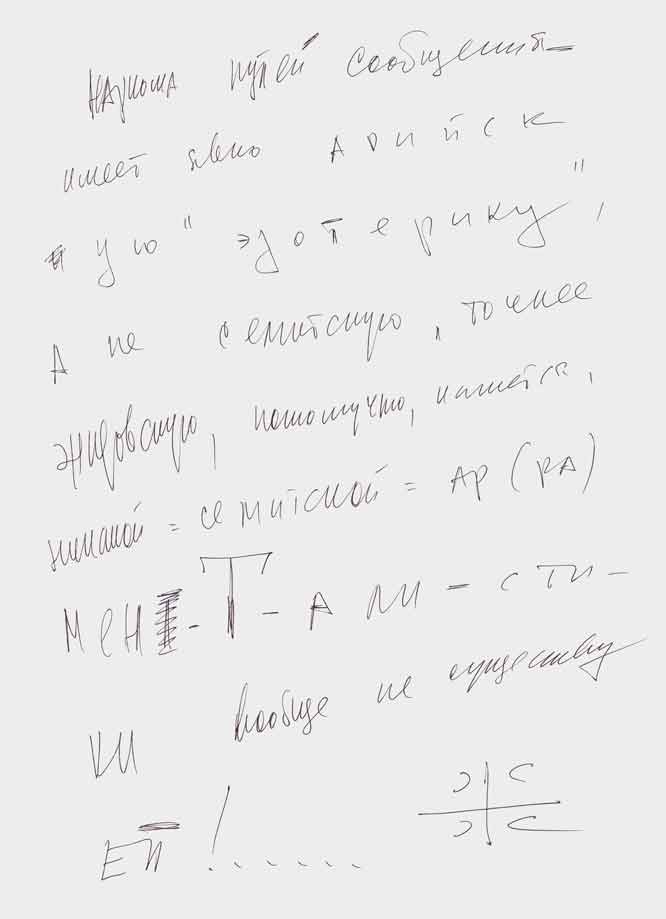 Наркома путей сообщения
имеет явно арийск
ую "эзотерику",
а не семитскую, точнее
жидовскую, потомучто, кажется,
никакой = семитской = АР (РА)
МЕН - Т - А ЛИ - СТИ -
КИ вообще не существу
ЕТ! . . . . . .